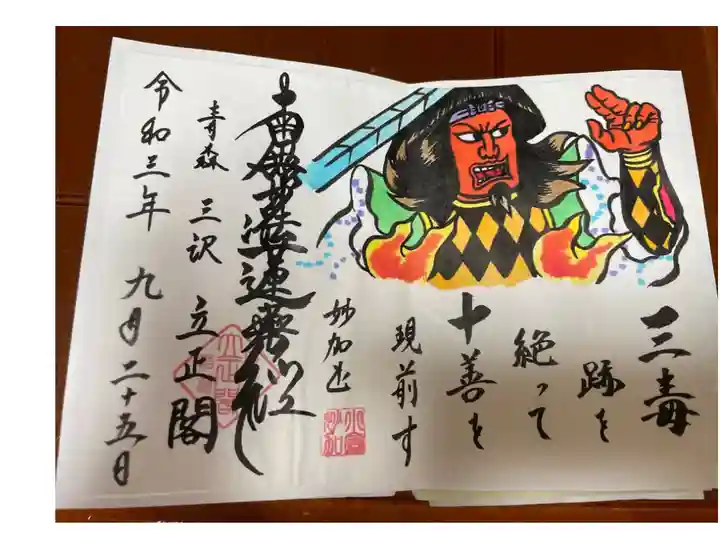 三毒
跡を
絶って
十善を
現前す
妙加邑
南無妙法蓮華経
青森 三沢 立正閣
令和三年 九月二十五日